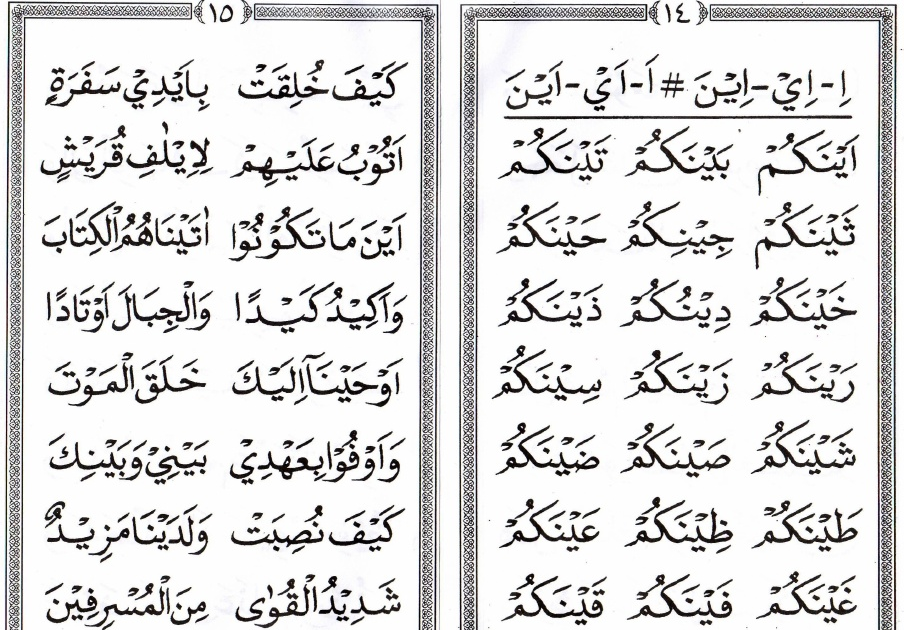 ﴿١٤﴾
اِ - اِيْ - اِيْنَ # اَ - اَيْ - اَيْنَ
اَيْنَكُمْ بَيْنَكُمْ تَيْنَكُمْ
ثَيْنَكُمْ جِيْنِكُمْ حَيْنَكُمْ
خَيْنَكُمْ دِيْنُكُمْ ذَيْنَكُمْ
رَيْنَكُمْ زَيْنَكُمْ سِيْنَكُمْ
شَيْنَكُمْ صَيْنَكُمْ ضَيْنَكُمْ
طَيْنَكُمْ ظِيْنَكُمْ عَيْنَكُمْ
غَيْنَكُمْ فَيْنَكُمْ قَيْنَكُمْ
﴿١٥﴾
كَيْفَ خُلِقَتْ بِاَيْدِيْ سَفَرَةٍ
اَتُوْبُ عَلَيْهِمْ لِاِيْلٰفِ قُرَيْشٍ
اَيْنَ مَا تَكُوْنُوْا اٰتَيْنَاهُمُ الْكِتَابَ
وَاَكِيْدُ كَيْدًا وَالْجِبَالَ اَوْتَادًا
اَوْحَيْنَآ اِلَيْكَ خَلَقَ الْمَوْتَ
وَاَوْفُوْا بِعَهْدِيْ بَيْنِيْ وَبَيْنِكَ
كَيْفَ نُصِبَتْ وَلَدَيْنَا مَزِيْدٌ
شَدِيْدُ الْقُوٰى مِنَ الْمُسْرِفِيْنَ